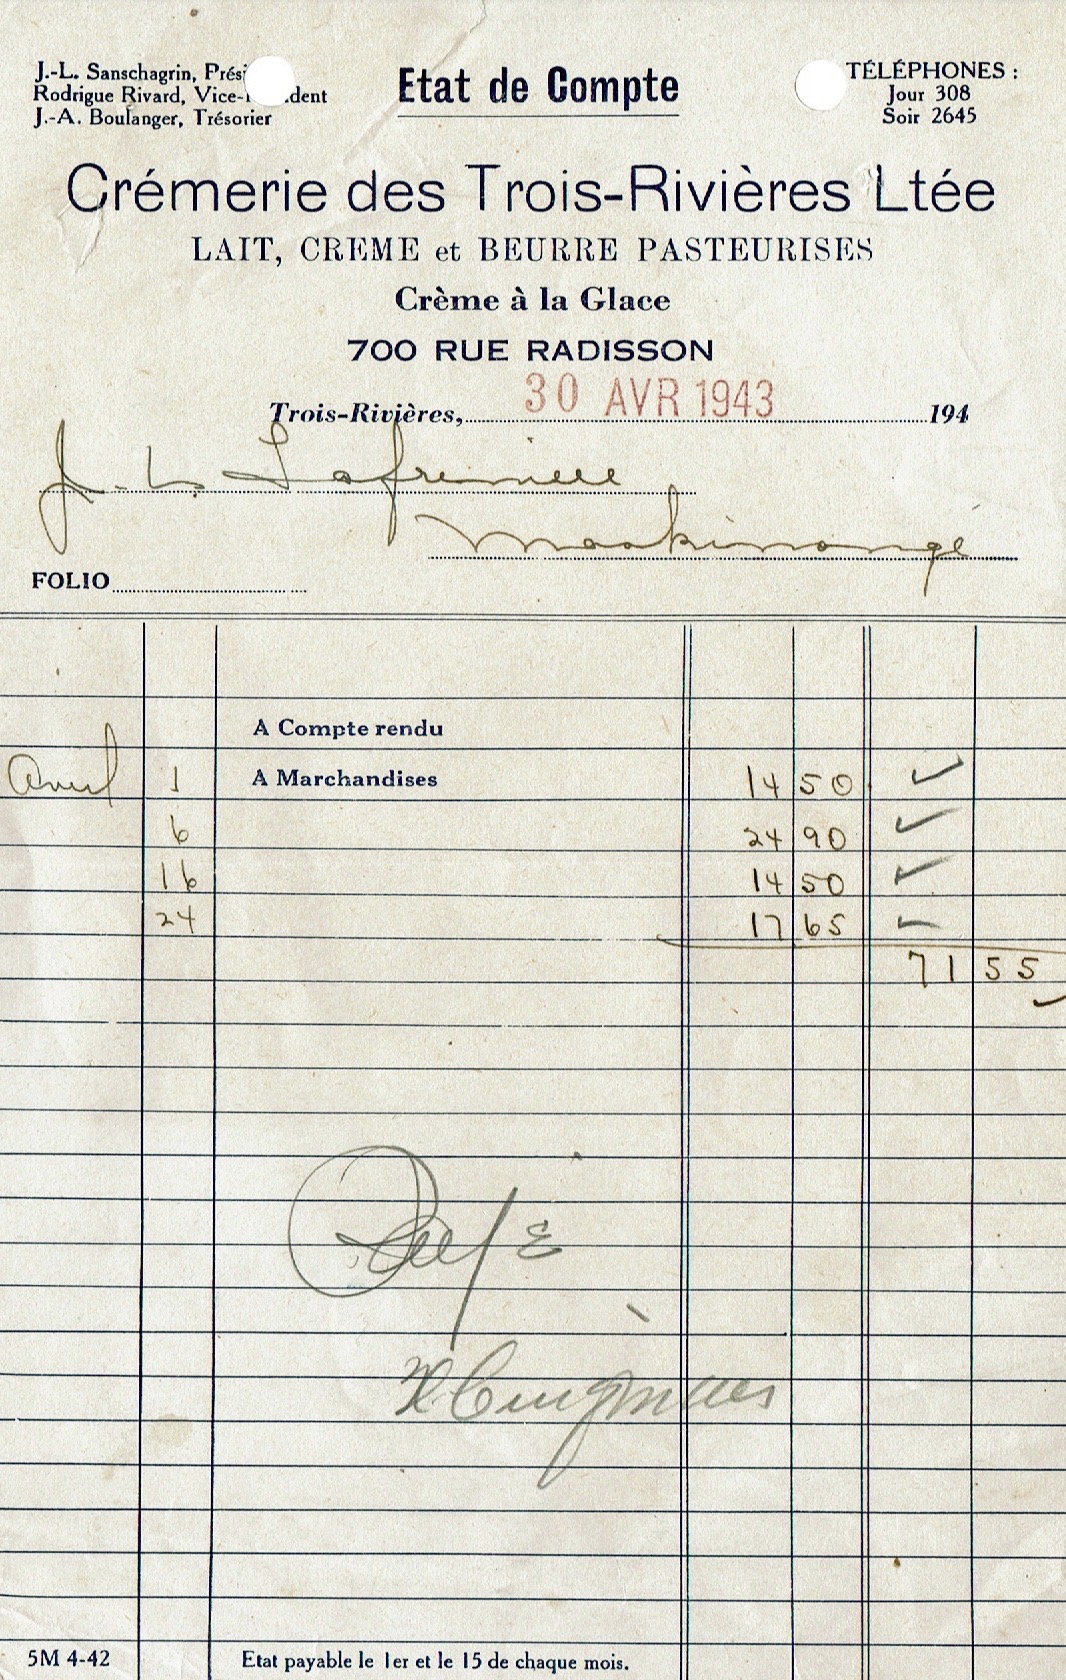 J.-L. Sanschagrin, Prési
Rodrigue Rivard, Vice- dent
J.-A. Boulanger, Trésorier
Etat de Compte
TÉLÉPHONES :
Jour 308
Soir 2645
Crémerie des Trois-Rivières Ltée
LAIT, CREME et BEURRE PASTEURISES
Crème à la Glace
700 RUE RADISSON
Trois-Rivières, 30 AVR 1943 194
J. L. Lafreniere
Maskinongé
FOLIO
A Compte rendu
Avril 1 A Marchandises 14 50
6 24 90
16 14 50
24 17 65
71 55
5M 4-42 Etat payable le 1er et le 15 de chaque mois.